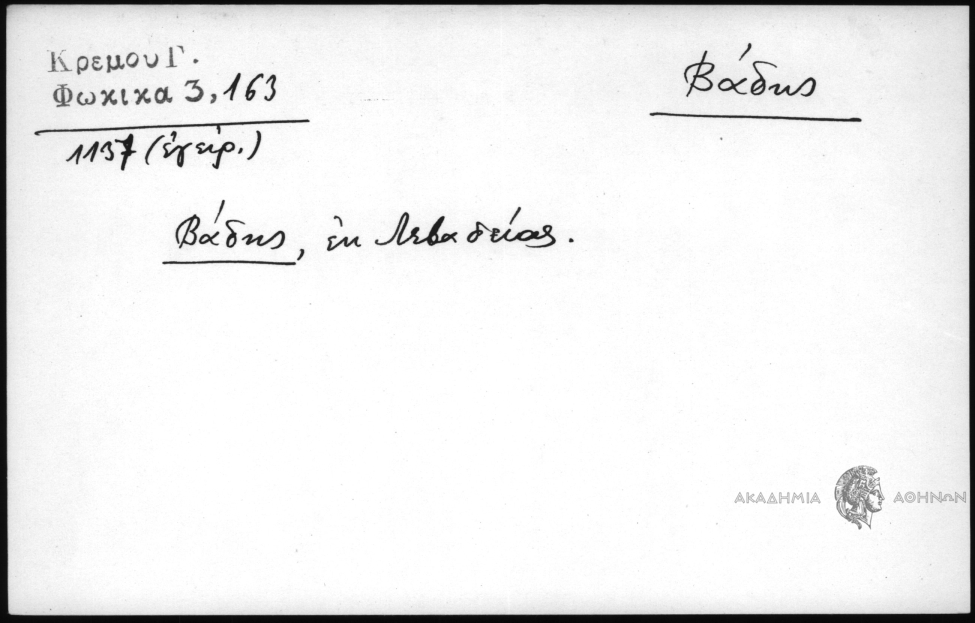 Κρεμου Γ.
Φωκικα 3, 163
Βάδης
1137 (ἐγείρ.)
Βάδης, ἐκ Λεβαδείας.
ΑΚΑΔΗΜΙΑ ΑΘΗΝΩΝ